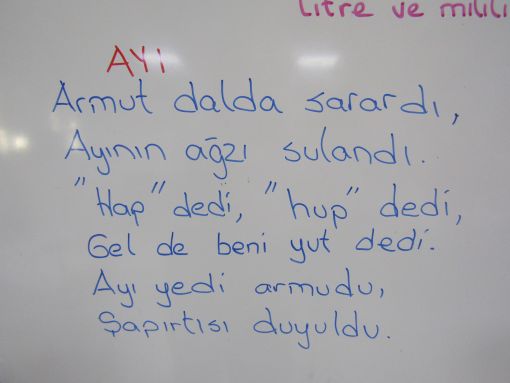 Litre ve milili
AYI
Armut dalda sarardı,
Ayının ağzı sulandı.
"Hap" dedi, "hup" dedi,
Gel de beni yut dedi.
Ayı yedi armudu,
Şapırtısı duyuldu.